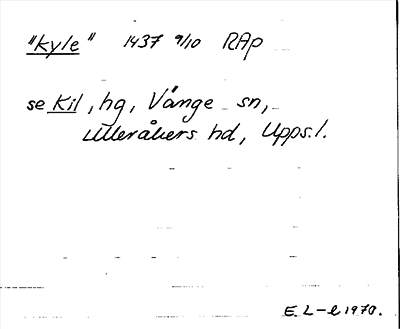 "Kyle" 1437 9/10 RAp
se Kil, hg, Vänge sn,
Ulleråkers hd, Upps.l.
E. L-l 1970.